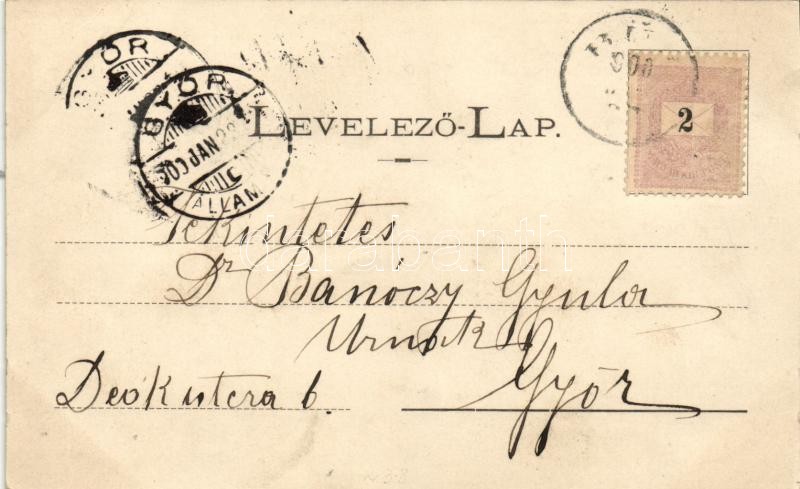 GYŐR
GYŐR
900 JAN 28
C
ÁLLAM
LEVELEZŐ-LAP.
2
Tekintetes
Dr Banóczy Gyula
Urnak
Győr
Deák utcza 6.
darabanth